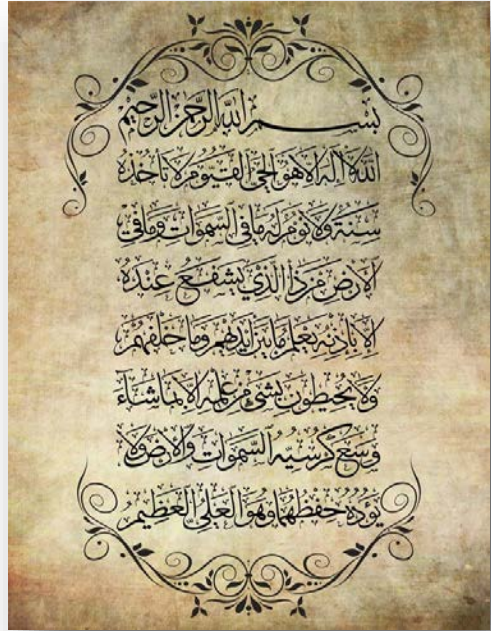 بسم الله الرحمن الرحيم
الله لا اله الا هو الحي القيوم لا تأخذه
سنة ولا نوم له ما في السموات وما في
الارض من ذا الذي يشفع عنده
الا باذنه يعلم ما بين ايديهم وما خلفهم
ولا يحيطون بشيء من علمه الا بما شاء
وسع كرسيه السموات والارض ولا
يؤده حفظهما وهو العلي العظيم